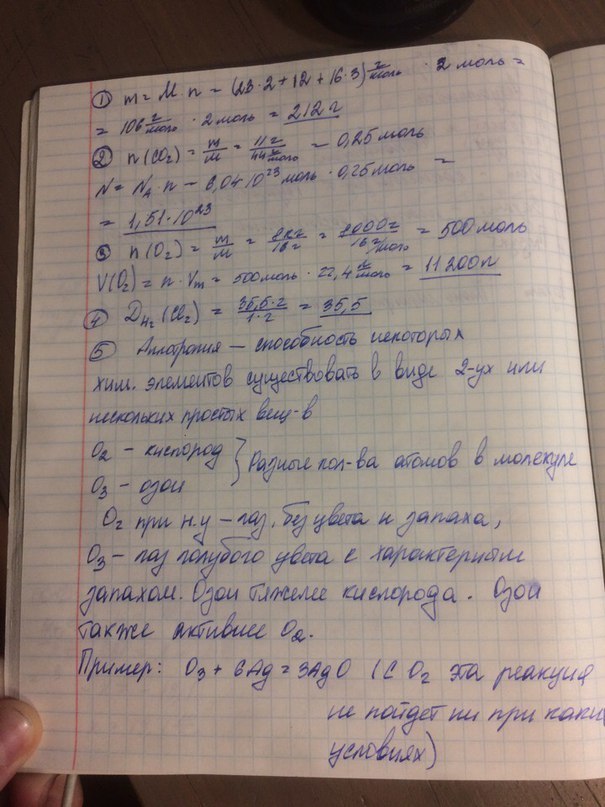 ① m = M · n = (23·2 + 12 + 16·3) г/моль · 2 моль =
= 106 г/моль · 2 моль = 212 г
② n(CO₂) = m/M = 11г/44 г/моль = 0,25 моль
N = Nₐ · n = 6,04 10²³ моль · 0,25 моль =
= 1,51·10²³
③ n(O₂) = m/M = 8кг/16г = 8000г/16 г/моль = 500 моль
V(O₂) = n · Vm = 500 моль · 22,4 л/моль = 11200л
④ D_H₂ (Cl₂) = 35,5·2/1·2 = 35,5
⑤ Аллотропия — способность некоторых
хим. элементов существовать в виде 2-ух или
нескольких простых вещ-в
O₂ - кислород
O₃ - озон } Разные кол-ва атомов в молекуле
O₂ при н.у – газ, без цвета и запаха,
O₃ – газ голубого цвета с характерным
запахом. Озон тяжелее кислорода. Озон
также активнее O₂.
Пример: O₃ + 6Ag = 3Ag O (С O₂ эта реакция
не пойдет ни при каки
условиях)